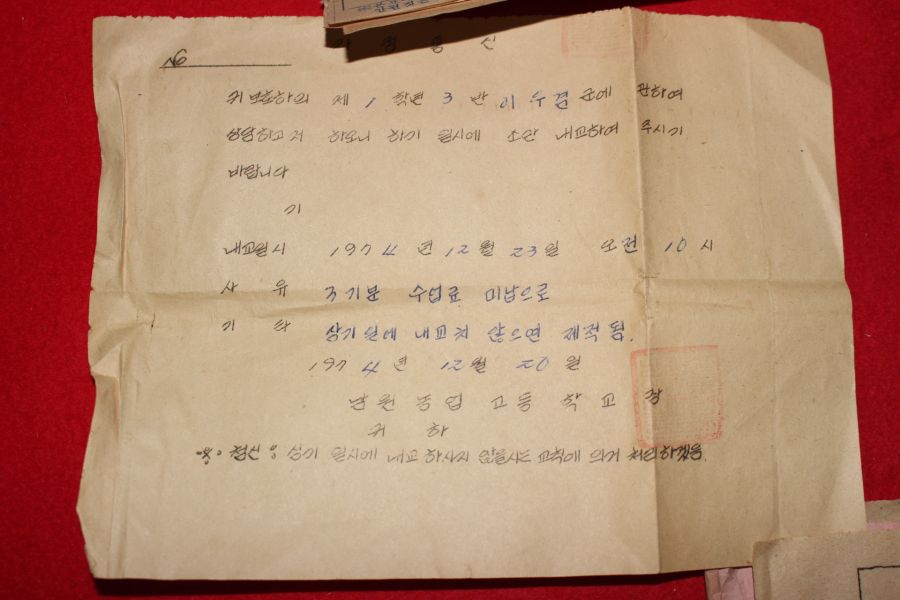 가 정 통 신
No
귀 보호하의 제 1 학년 3 반 이우결 군에 관하여
상담하고저 하오니 하기 일시에 소만 내교하여 주시기
바랍니다
기
내교일시 1974년 12월 23일 오전 10시
사유 3기분 수업료 미납으로
기타 상기일에 내교치 않으면 제적됨.
1974년 12월 20일
남원농업고등학교장
귀하
※ 첨신: 상기 일시에 내교 하시지 않을시는 교칙에 의거 처리하겠음.